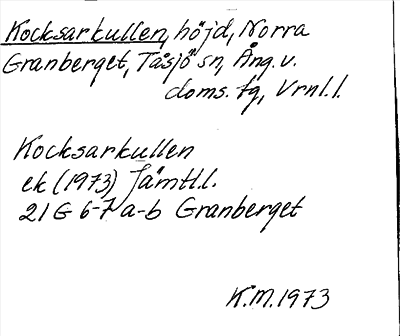 Kocksarkullen, höjd, Norra
Granberget, Tåsjö sn, Ång. v.
doms. fg, Vrnl. l.
Kocksarkullen
ek (1973) Jämtl.l.
21G 6-7 a-b Granberget
K.M. 1973